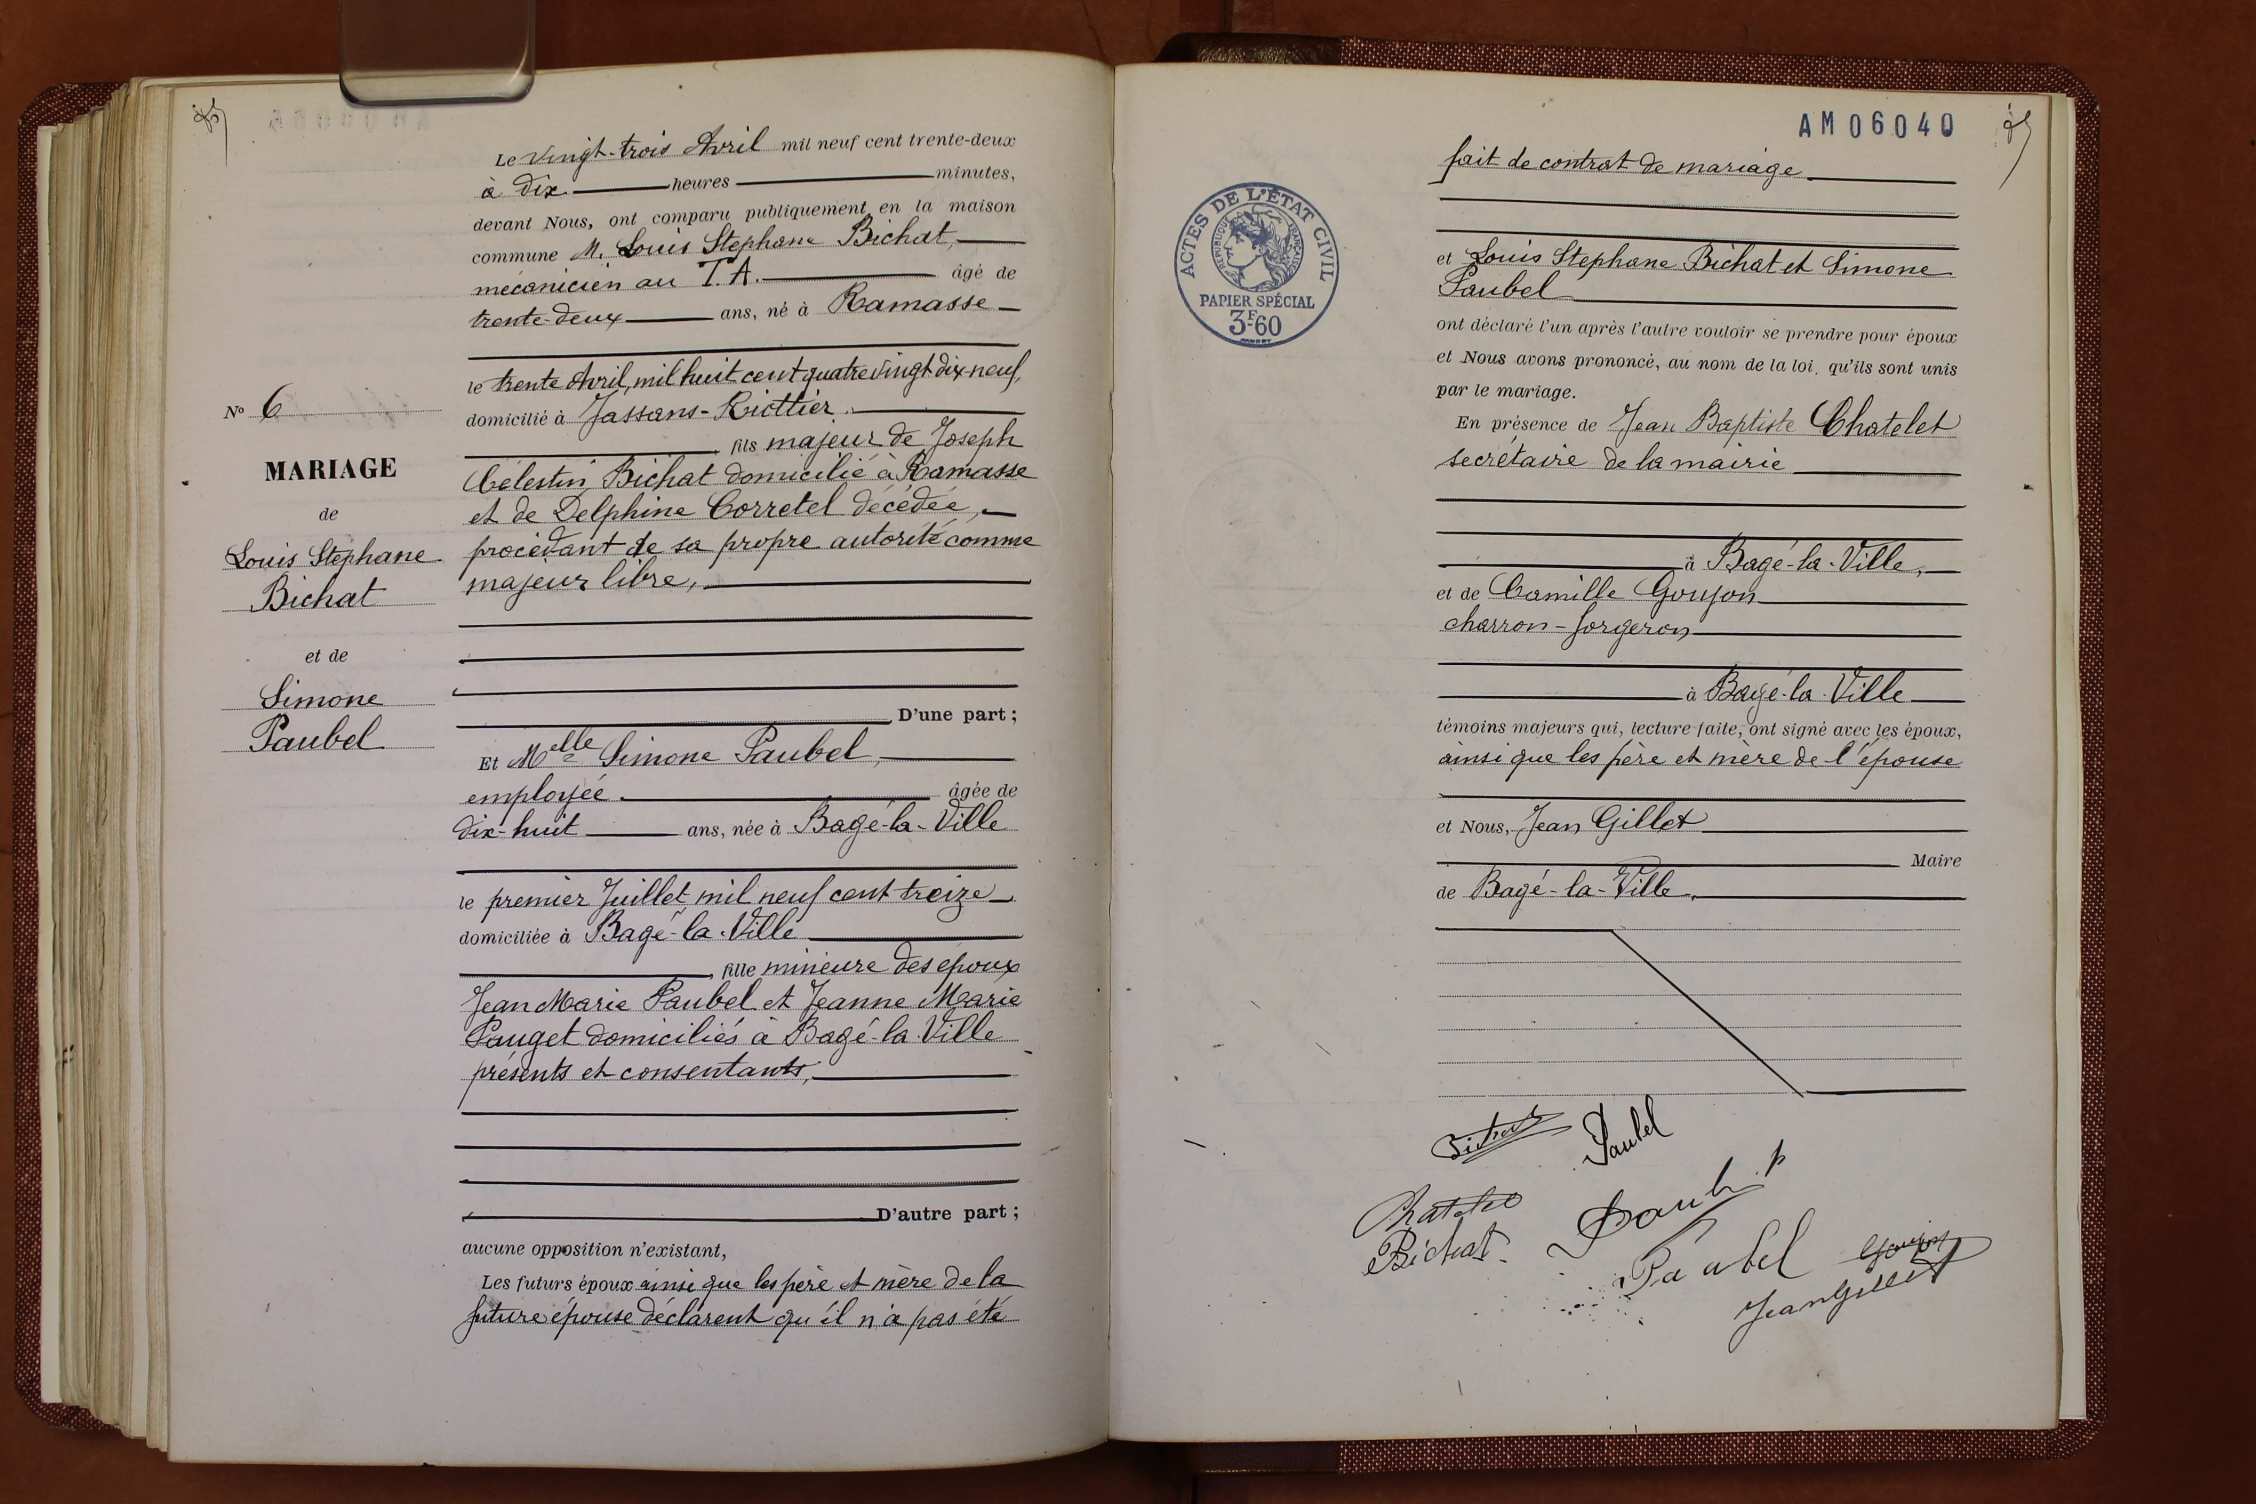 Le vingt-trois Avril mil neuf cent trente-deux
à dix heures minutes,
devant Nous, ont comparu publiquement en la maison
commune M. Louis Stephane Bichat,
mécanicien au T.A. âgé de
trente-deux ans, né à Ramasse
le trente Avril, mil huit cent quatre vingt dix-neuf,
domicilié à Jassans-Riottier.
fils majeur de Joseph
Célestin Bichat domicilié à Ramasse
et de Delphine Corretel décédée,
procédant de sa propre autorité comme
majeur libre,
D'une part ;
Et Melle Simone Paubel,
employée. âgée de
dix-huit ans, née à Bagé-la-Ville
le premier Juillet mil neuf cent treize
domiciliée à Bagé-la-Ville
fille mineure des époux
Jean Marie Paubel et Jeanne Marie
Pauget domiciliés à Bagé-la Ville
présents et consentants,
D'autre part ;
aucune opposition n'existant,
Les futurs époux ainsi que les père et mère de la
future épouse déclarent qu'il n'a pas été
No 6
MARIAGE
de
Louis Stephane
Bichat
et de
Simone
Paubel
AM06040
ACTES DE L'ÉTAT CIVIL
RÉPUBLIQUE FRANÇAISE
PAPIER SPÉCIAL
3F60
fait de contrat de mariage
et Louis Stephane Bichat et Simone
Paubel
ont déclaré l'un après l'autre vouloir se prendre pour époux
et Nous avons prononcé, au nom de la loi, qu'ils sont unis
par le mariage.
En présence de Jean Baptiste Chatelet
secrétaire de la mairie
à Bagé-la-Ville,
et de Camille Goujon
charron-forgeron
à Bagé-la-Ville
témoins majeurs qui, lecture faite, ont signé avec les époux,
ainsi que les père et mère de l'épouse
et Nous, Jean Gillet
Maire
de Bagé-la-Ville.
Paubel
Bichat
Paubel
Goujon
Jean Gillet